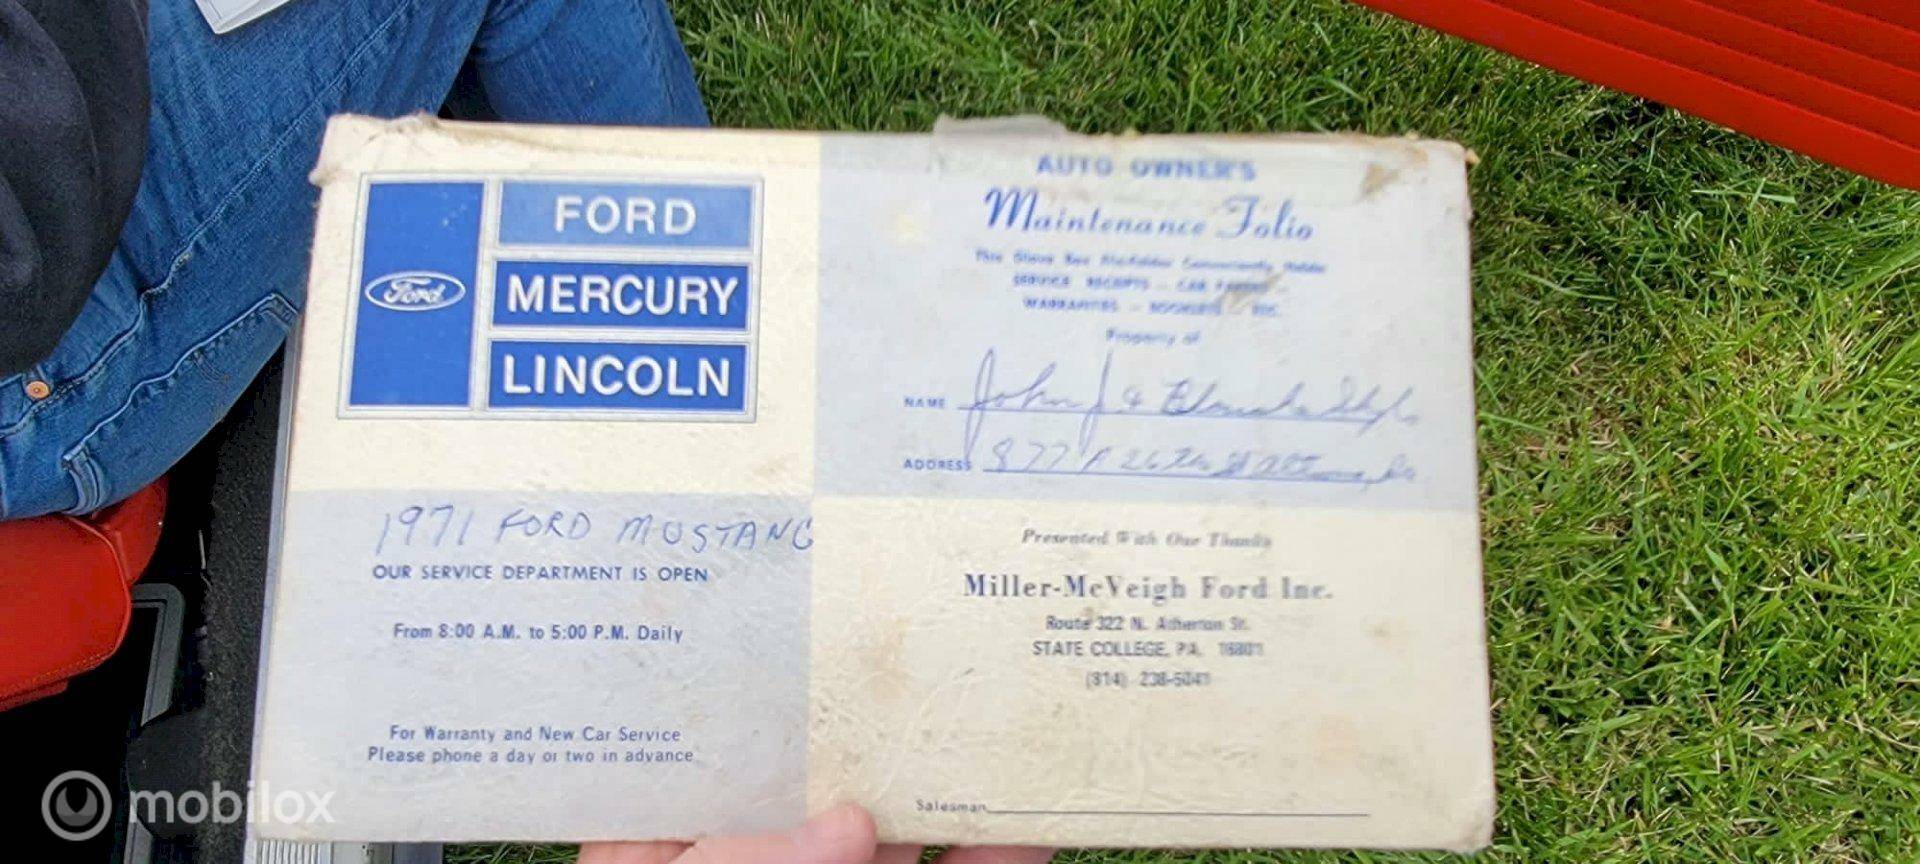 FORD
Ford
MERCURY
LINCOLN
AUTO OWNER'S
Maintenance Folio
This Glove Box File Folder Conveniently Holds
SERVICE RECEIPTS - CAR
WARRANTIES - BOOKLETS - ETC.
Property of
NAME John J &
ADDRESS 877
1971 FORD MUSTANG
OUR SERVICE DEPARTMENT IS OPEN
From 8:00 A.M. to 5:00 P.M. Daily
For Warranty and New Car Service
Please phone a day or two in advance
Presented With Our Thanks
Miller-McVeigh Ford Inc.
Route 322 N. Atherton St.
STATE COLLEGE, PA. 16801
(814) 238-5041
Salesman
mobilox